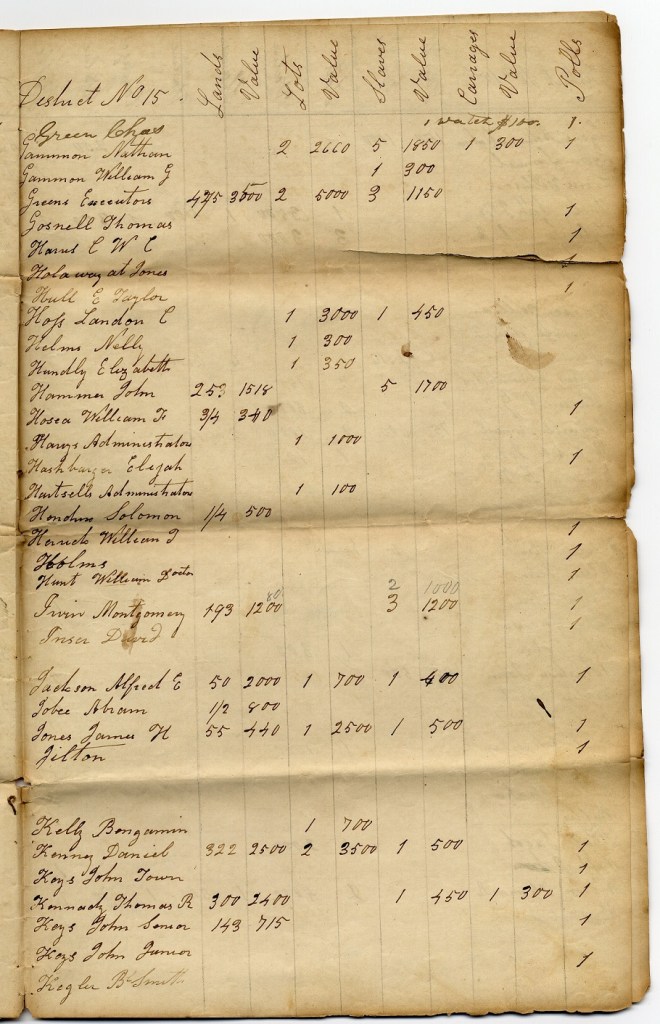 District No 15. Lands Value Lots Value Slaves Value Carrages Value Polls
Green Chas 1 watch $100. 1.
Gammon Nathan 2 2660 5 1850 1 300 1
Gammon William G 1 300
Greens Executors 475 3500 2 5000 3 1150
Gosnell Thomas 1
Harris C W C 1
Holaway at Jones 1
Hull E Taylor 1
Hoss Landon C 1 3000 1 450
Helms Nelly 1 300
Hundly Elizabeth 1 350
Hammer John 253 1518 5 1700
Hosea William F 3/4 340 1
Harrys Administrator 1 1000
Hashbarger Elijah 1
Hartsells Administrator 1 100
Hendrix Solomon 1/4 500
Herrick William D 1
Holms 1
Hunt William Doctor 1
2 1000
Irvin Montgomery 193 1200 3 1200 1
Inser David 1
Jackson Alfred E 50 2000 1 700 1 400 1
Jobee Abram 1/2 800
Jones James H 55 440 1 2500 1 500 1
Jilton 1
Kelly Bengamin 1 700
Kenney Daniel 322 2500 2 3500 1 500 1
Keys John Town 1
Kennady Thomas R 300 2400 1 450 1 300 1
Keys John Senior 143 715 1
Keys John Junior 1
Kegler B Smith